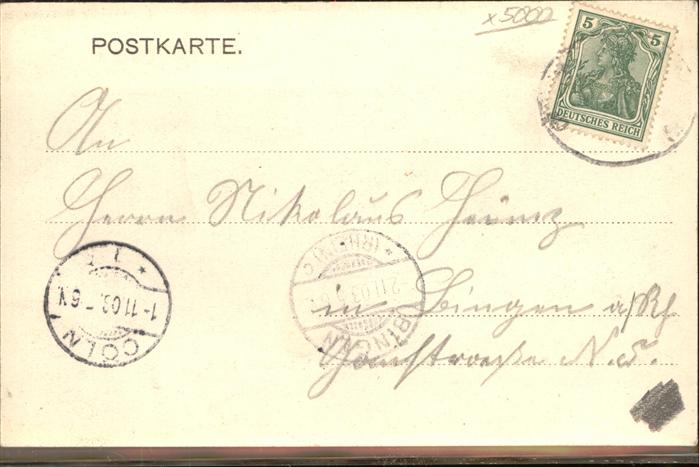 x5000
POSTKARTE.
5 5
DEUTSCHES REICH
An
Herrn Nikolaus Heinz
in Bingen a/Rh.
N. 5.
CÖLN
1-11.03. 6
* 1 *
BINGEN
2.11.03
* (RHEIN) *